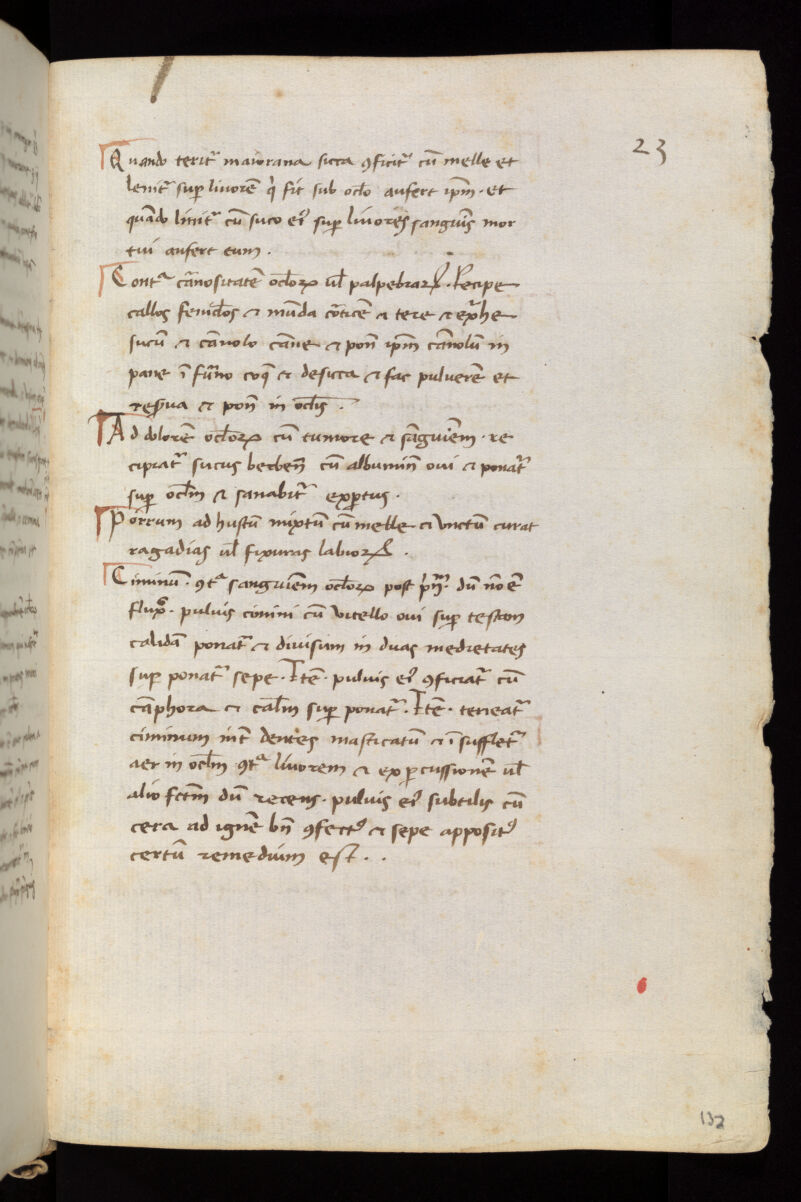 23
Quando terit᷑ maiorana sicca ꝯficit᷑ cū melle et
lenit᷑ suꝑ livorē q̇ fit sub oc̄lo aufert ip̄m · et
quādo linit᷑ cū suco eiꝰ suꝑ livores sanguīs mor
tui aufert eum .
Contᷓ cānositatē oc̄loꝝ ul̄ palpebraꝝ . Recipe
callos feniclos & mūda corticē & tere &
sucū & cānolo cāne & pon̄ ip̄m cānolū in
pane ī furno coq̄ & desicca & fac pulverē et
reẜva & pon̄ in oc̄lis .
Ad dolorē oc̄loꝝ cū tumore & sāguīem · re
cipiat᷑ sucus berben̄ cū albumin̄ oui & ponat᷑
suꝑ oc̄lm & sanabit᷑ exꝑtus .
Porrum ad hustū mixtū cū melle & unctū curat
ragadias ul̄ fixuras labioꝝ .
Ciminū · ꝯtᷓ sanguīem oc̄loꝝ post dū nō ē
fluxꝰ · pulvis cimini cū vitello oui suꝑ testam
calidā ponat᷑ & divisum in duas medietates
suꝑ ponat᷑ sepe · Itē · pulvis eiꝰ ꝯficiat᷑ cū
cāphora & suꝑ ponat᷑ · Itē · teneat᷑
ciminum int̄ dentes masticatū & īsufflet᷑
aer in oc̄lm ꝯtᷓ livorem & ex ꝑcussionē ul̄
alio fc̄tm dū recens · pulvis eiꝰ subtilis cū
cera ad ignē bn̄ ꝯfectꝰ & sepe appositꝰ
certū remedium est . .
132